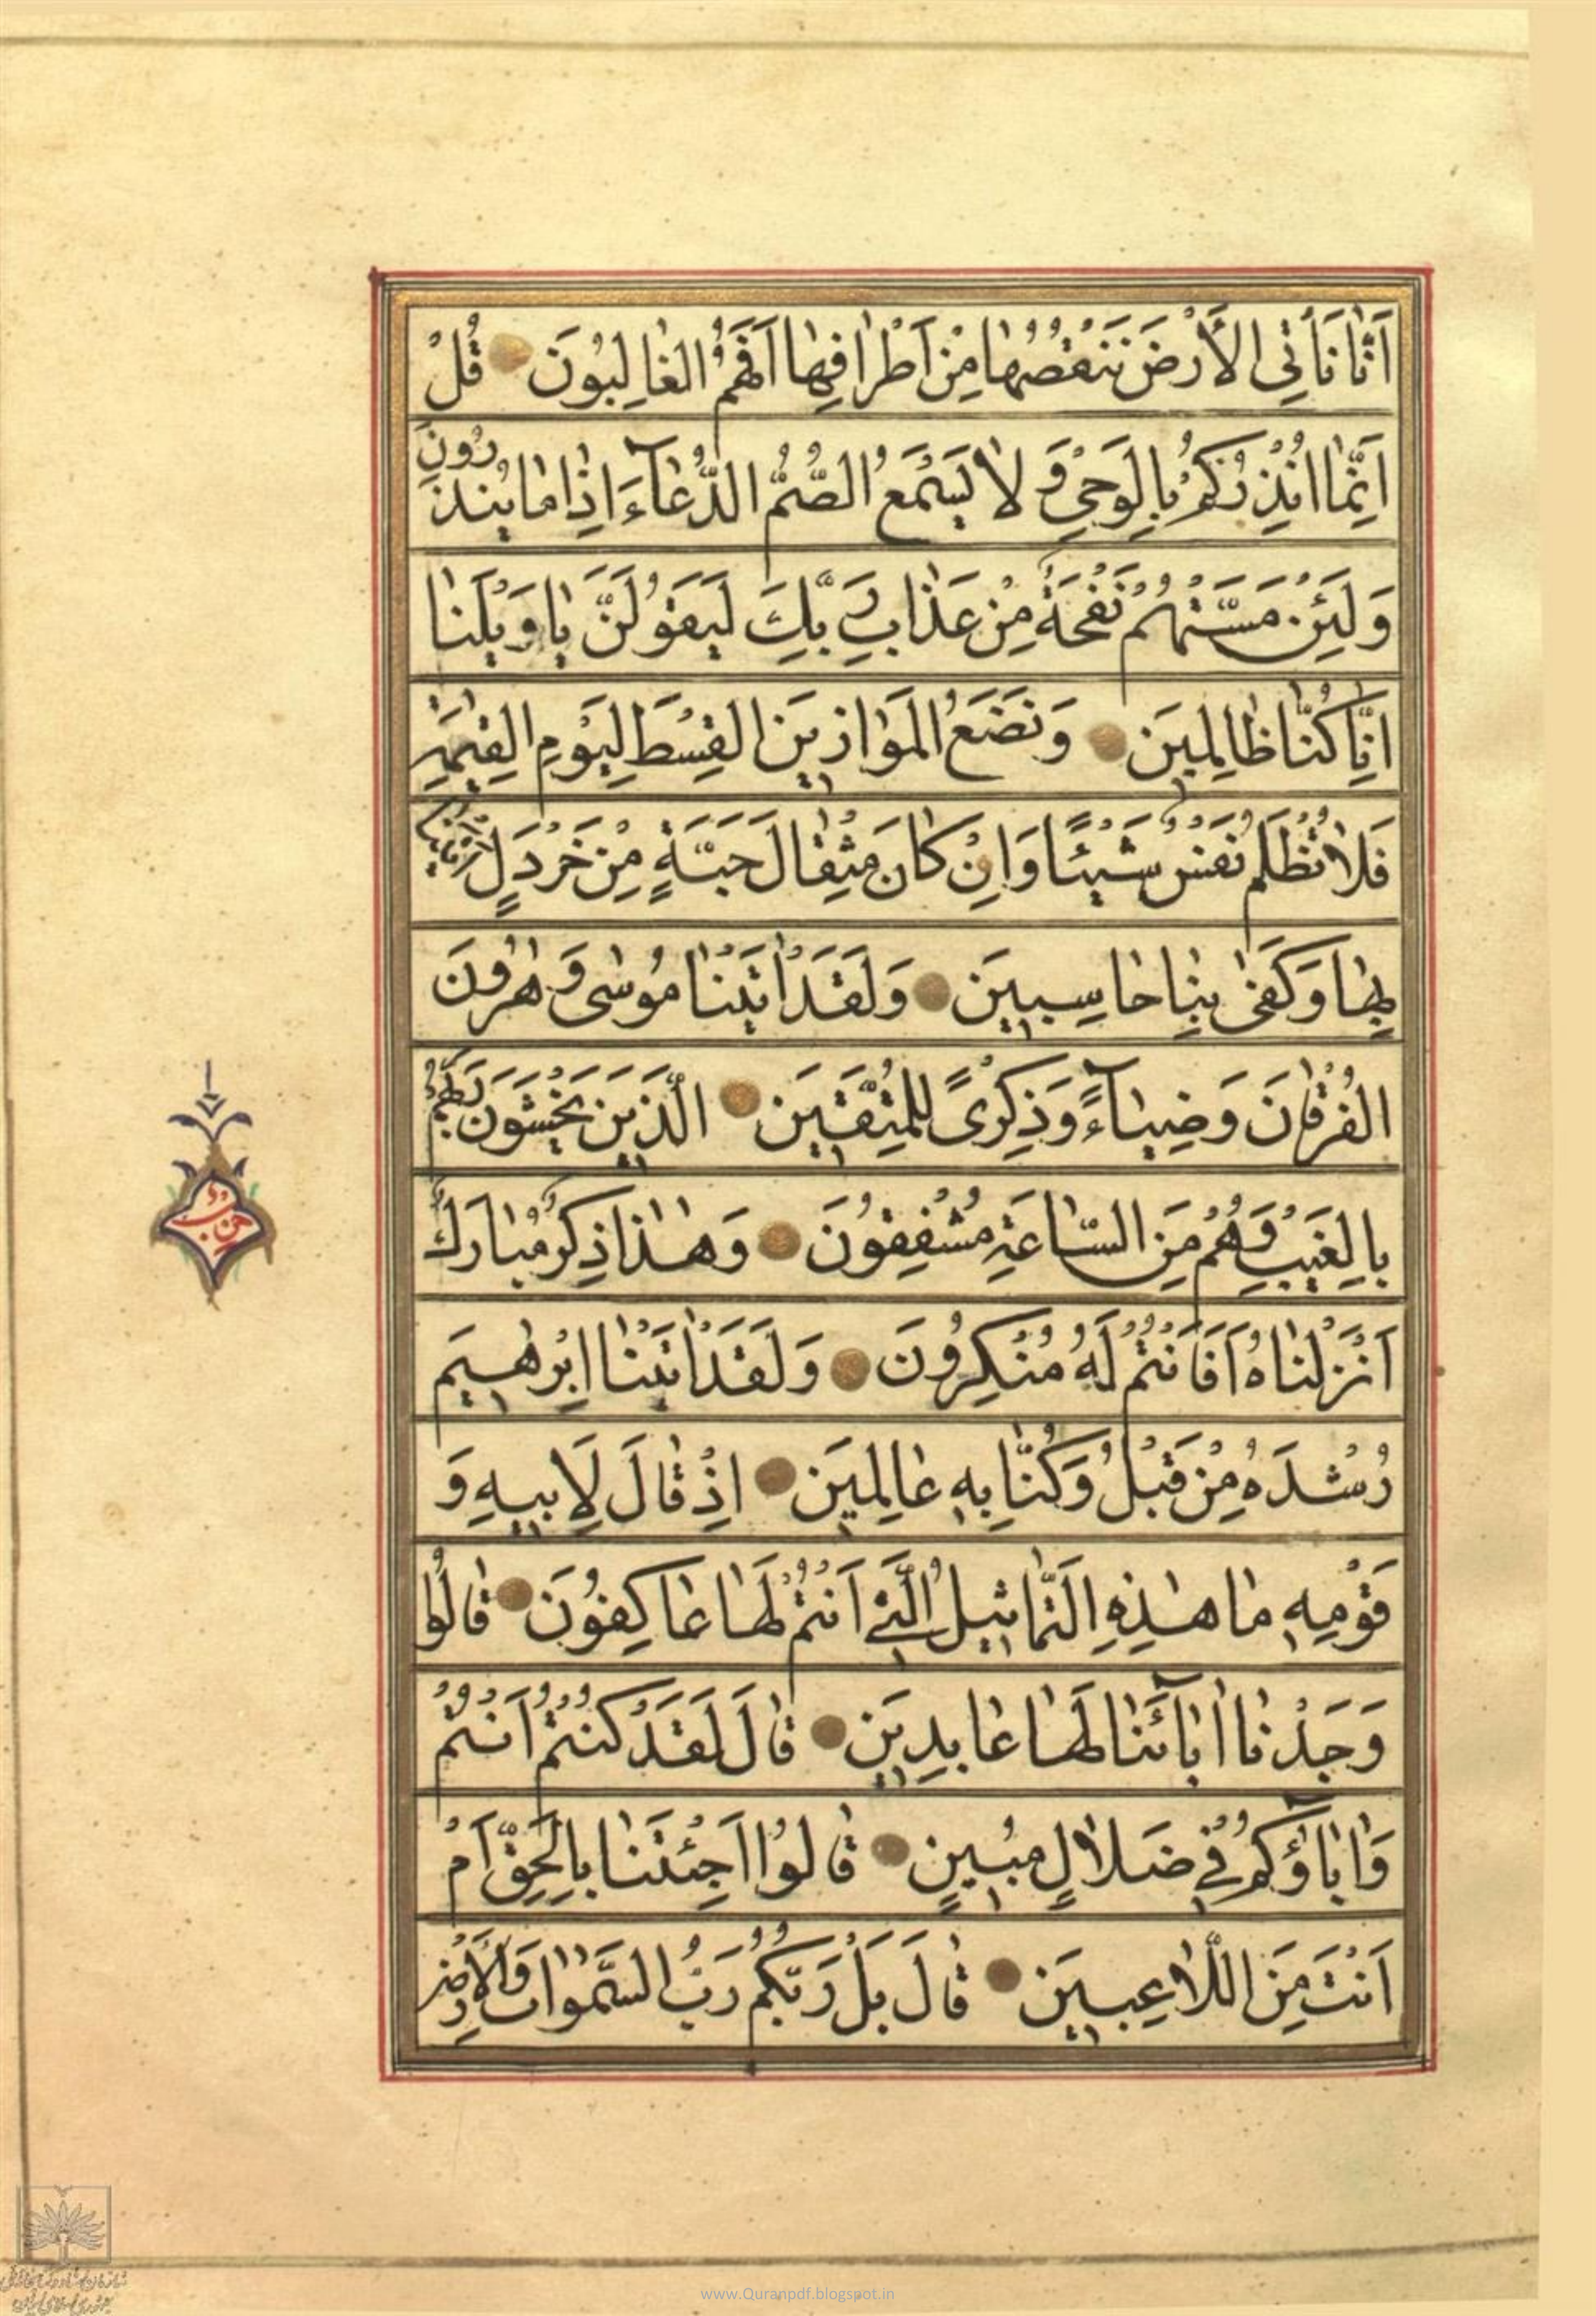 اَنّٰا نَأْتِي الْأَرْضَ نَنْقُصُهٰا مِنْ اَطْرٰافِهٰا اَفَهُمُ الْغٰالِبُونَ قُلْ
اِنَّمٰا اُنْذِرُكُمْ بِالْوَحْيِ وَ لٰا يَسْمَعُ الصُّمُّ الدُّعٰآءَ اِذٰا مٰا يُنْذَرُونَ
وَلَئِنْ مَسَّتْهُمْ نَفْحَةٌ مِنْ عَذٰابِ رَبِّكَ لَيَقُولُنَّ يٰا وَيْلَنٰا
اِنّٰا كُنّٰا ظٰالِمِينَ وَنَضَعُ الْمَوٰازِينَ الْقِسْطَ لِيَوْمِ الْقِيٰمَةِ
فَلٰا تُظْلَمُ نَفْسٌ شَيْئًا وَاِنْ كٰانَ مِثْقٰالَ حَبَّةٍ مِنْ خَرْدَلٍ اَتَيْنٰا
بِهٰا وَكَفٰى بِنٰا حٰاسِبِينَ وَلَقَدْ اٰتَيْنٰا مُوسٰى وَ هٰرُونَ
الْفُرْقٰانَ وَضِيٰآءً وَذِكْرًى لِلْمُتَّقِينَ الَّذِينَ يَخْشَوْنَ رَبَّهُمْ
بِالْغَيْبِ وَهُمْ مِنَ السّٰاعَةِ مُشْفِقُونَ وَهٰذٰا ذِكْرٌ مُبٰارَكٌ
اَنْزَلْنٰاهُ اَفَاَنْتُمْ لَهُ مُنْكِرُونَ وَلَقَدْ اٰتَيْنٰا اِبْرٰهِيمَ
رُشْدَهُ مِنْ قَبْلُ وَكُنّٰا بِهِ عٰالِمِينَ اِذْ قٰالَ لِاَبِيهِ وَ
قَوْمِهِ مٰا هٰذِهِ التَّمٰاثِيلُ الَّتِي اَنْتُمْ لَهٰا عٰاكِفُونَ قٰالُوا
وَجَدْنٰا اٰبٰآئَنٰا لَهٰا عٰابِدِينَ قٰالَ لَقَدْ كُنْتُمْ اَنْتُمْ
وَاٰبٰاؤُكُمْ فِي ضَلٰالٍ مُبِينٍ قٰالُوا اَجِئْتَنٰا بِالْحَقِّ اَمْ
اَنْتَ مِنَ اللّٰاعِبِينَ قٰالَ بَلْ رَبُّكُمْ رَبُّ السَّمٰوٰاتِ وَالْأَرْضِ
حزب
www.Quranpdf.blogspot.in